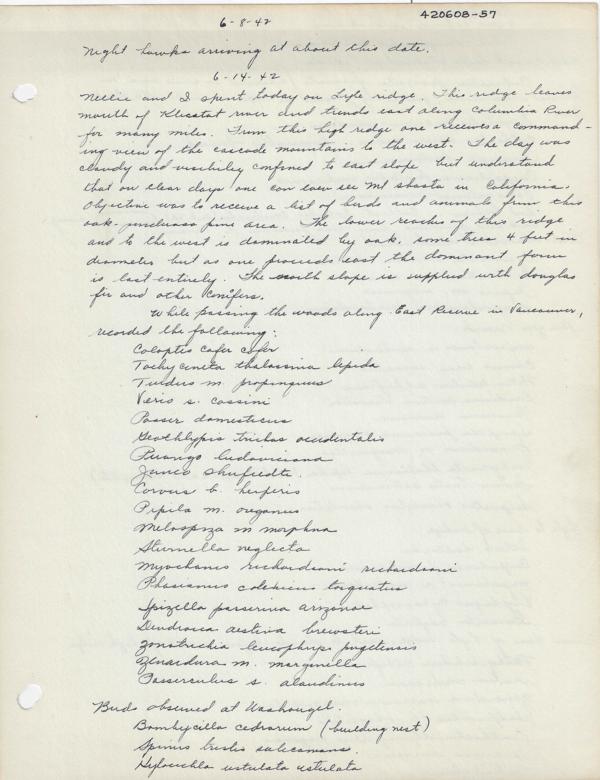 6-8-42
420608-57
Night hawks arriving at about this date.
6-14-42
Nellie and I spent today on Lyle ridge. This ridge leaves
mouth of Klicatat river and trends east along Columbia River
for many miles. From this high ridge one receives a command-
ing view of the cascade mountains to the west. The day was
cloudy and visibility confined to east slope but understand
that on clear days one can even see Mt Shasta in California.
Objective was to receive a list of birds and animals from this
oak-ponderosa pine area. The lower reaches of this ridge
and to the west is dominated by oak, some trees 4 feet in
diameter but as one proceeds east the dominant form
is lost entirely. The north slope is supplied with douglas
fir and other conifers.
While passing the woods along East Reserve in Vancouver,
recorded the following:
Coloptes cafer cafer
Tachycineta thalassina lepida
Turdus m. propinquus
Verio s. cassini
Passer domesticus
Geothlypis trichas occidentalis
Piranga ludoviciana
Junco shufeldti.
Corvus b. hesperis
Pipilo m. oregonus
Melospiza m morphna
Sturnella neglecta
Myiochanes richardsoni richardsoni
Phasianus colchicus torquatus
Spizella passerina arizonae
Dendroica aestiva brewsteri
Zonotrichia leucophrys pugetensis
Zenaidura m. marginella
Passerculus s. alaudinus
Birds observed at Washougal.
Bombycilla cedrorum (building nest)
Spinus tristis salicamans.
Hylocichla ustulata ustulata